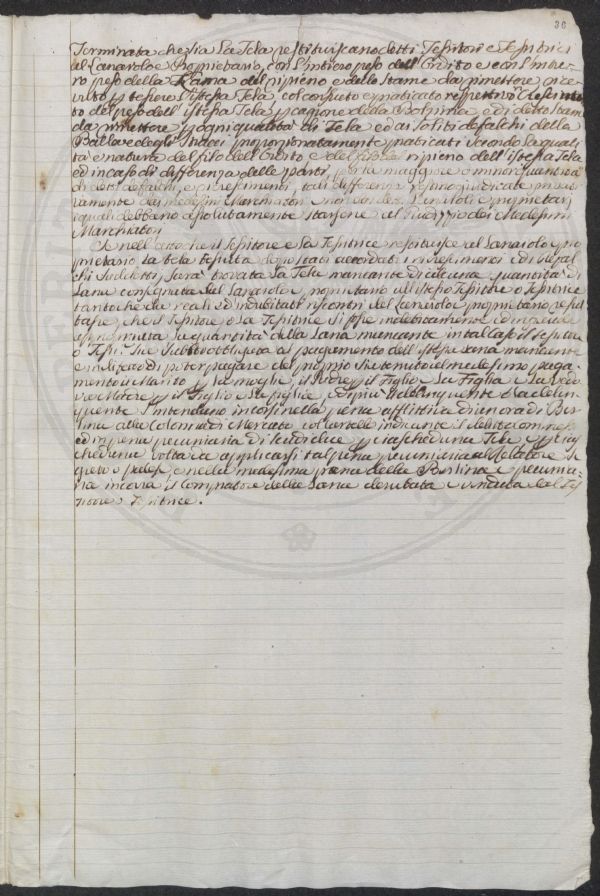 36
Terminata che sia La Tela restituiscano detti Tessitori e Tessitrici
al Lanarolo e Proprietario, con l'intiero peso dell'Ordito e con l'intie-
ro peso della Lana del ripieno e dello Stame da rimettere rice-
vuto p tessere l'istessa Tela col consueto e praticato respettivo Cresimen
to del peso dell'istessa Tela p cagione della Bozzima e di detto Stame
da rimettere p ogni qualità di Tela ed ai soliti defalchi della
Ballare degli Stracci proporzionatamente praticati secondo la quali
tà e natura del filo dell'Ordito e del ripieno dell'istessa Tela
ed in caso di differenza delle parti, per la maggiore o minor quantità
di detti defalchi, e cresimenti, tali differenze siano giudicate
dai medesimi Marchiatori
quali debbano assolutamente starsene al Giudizio dei Medesimi
Marchiatori
E nell'atto che il Tessitore e La Tessitrice restituisce al Lanarolo pro
prietario La tela tessuta dopo tarati
Suddetti, Sarà trovata La Tela mancante di alcuna quantità di
Lana consegnata dal Lanarolo proprietario all'istesso Tessitore o Tessitrice
tanto che da reali ed indubitati riscontri del Lanarolo proprietario resul
tasse, che il Tessitore o La Tessitrice Si fosse indebitamente
La quantità della Lana mancante in tal caso il Tessitore
o Tessitrice Sia Subito obbligato al pagamento dell'istessa Lana mancante
e in difetto di poter pagare del proprio Sia tenuto al medesimo paga-
mento il Marito p La moglie, il Padre p il Figlio e La Figlia e La
Madre p il Figlio e La Figlia, e di più il delinquente e La delin
quente S'intendino incorsi nella pena afflittiva di un'ora di Ber
lina alla Colonna di Mercato col Cartello indicante il delitto commesso
ed in pena pecuniaria di Scudi dieci p ciascheduna Tela e p cias
cheduna volta da applicarsi tal pena pecuniaria al Relatore Se
greto o palese, e nella medesima pena della Berlina e pecunia-
ria incorra il Compratore della Lana derubata e venduta dal Tes
sitore o Tessitrice.